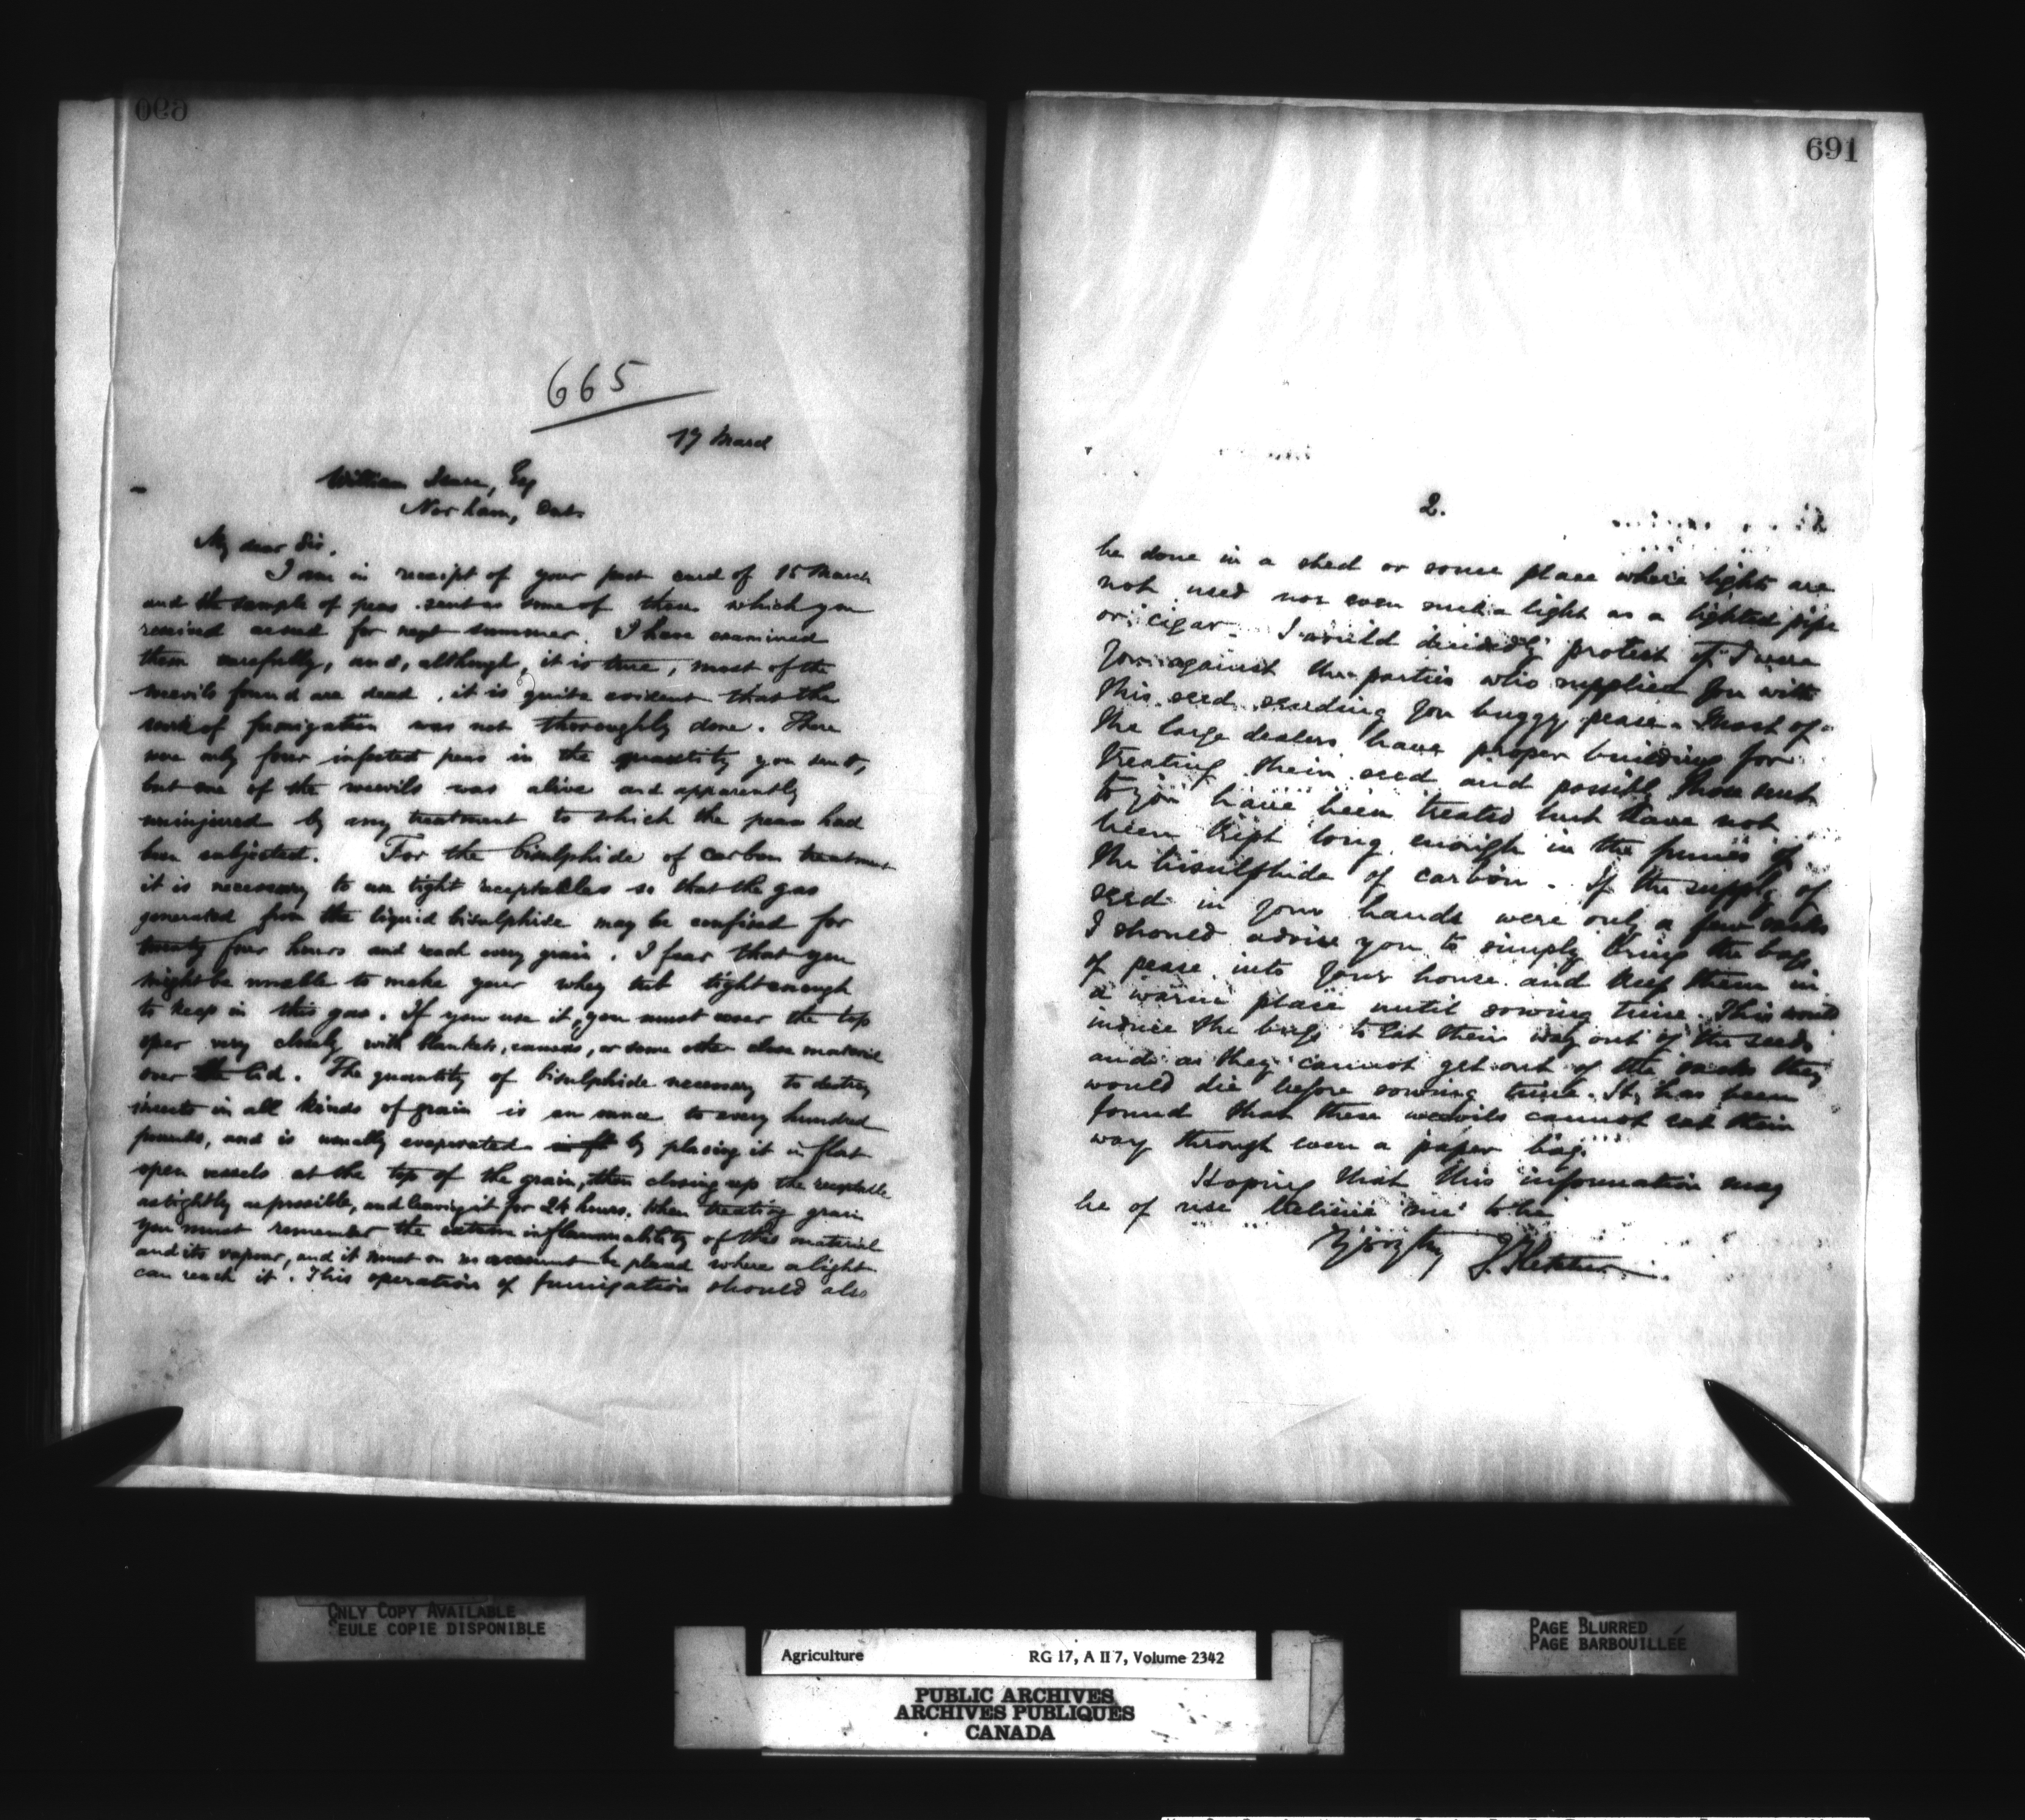 690
665
17 March
William , Esq
Norham, Ont.
My dear Sir.
I am in receipt of your post card of 15 March
and the sample of peas sent as some of those which you
received as seed for next summer. I have examined
them carefully, and, although, it is true, most of the
weevils found are dead, it is quite evident that the
work of fumigation was not thoroughly done. There
were only four infested peas in the quantity you sent,
but one of the weevils was alive and apparently
uninjured by any treatment to which the peas had
been subjected. For the bisulphide of carbon treatment
it is necessary to use tight receptacles so that the gas
generated from the liquid bisulphide may be confined for
twenty four hours and reach every grain. I fear that you
might be unable to make your whey tub tight enough
to keep in this gas. If you use it, you must cover the top
over very closely with blankets, canvas, or some other close material
over the lid. The quantity of bisulphide necessary to destroy
insects in all kinds of grain is an ounce to every hundred
pounds, and is usually evaporated by placing it in flat
open vessels at the top of the grain, then closing up the receptacle
as tightly as possible, and leaving it for 24 hours. When treating grain
you must remember the extreme inflammability of this material
and its vapour, and it must on no account be placed where a light
can reach it. This operation of fumigation should also
691
2.
be done in a shed or some place where lights are
not used nor even such a light as a lighted pipe
or cigar. I would decidedly protest if I were
you against the parties who supplied you with
this seed sending you buggy pease. Most of
the large dealers have proper buildings for
treating their seed and possibly those sent
to you have been treated but have not
been kept long enough in the fumes of
the bisulphide of carbon. If the supply of
seed in your hands were only a few sacks
I should advise you to simply bring the bags
of pease into your house and keep them in
a warm place until sowing time. This would
induce the bugs to eat their way out of the seeds
and as they cannot get out of the sacks they
would die before sowing time. It has been
found that these weevils cannot eat their
way through even a paper bag.
Hoping that this information may
be of use believe me to be
Yours try J. Fletcher
ONLY COPY AVAILABLE
SEULE COPIE DISPONIBLE
Agriculture RG 17, A II 7, Volume 2342
PUBLIC ARCHIVES
ARCHIVES PUBLIQUES
CANADA
PAGE BLURRED
PAGE BARBOUILLÉE